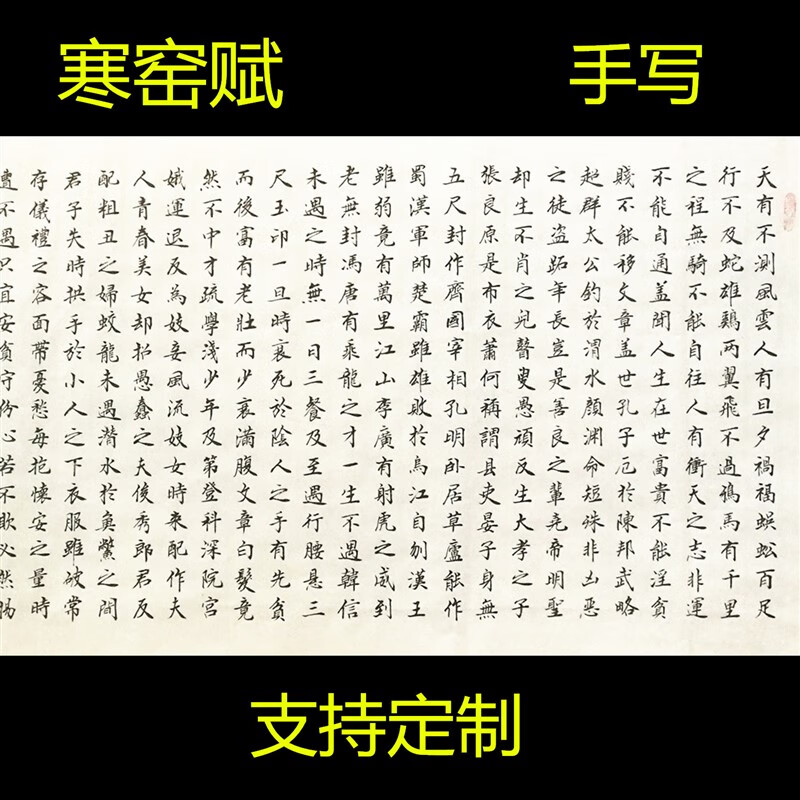 寒窑赋
手写
天有不測風雲人有旦夕禍福蜈蚣百足
行不及蛇雄鷄兩翼飛不過鴉馬有千里
之程無騎不能自往人有衝天之志非運
不能自通蓋聞人生在世富貴不能淫貧
賤不能移文章蓋世孔子厄於陳邦武略
超群太公釣於渭水顏淵命短殊非凶惡
之徒盜跖年長豈是善良之輩堯帝明聖
却生不肖之兒瞽叟愚頑反生大孝之子
張良原是布衣蕭何稱謂县吏晏子身無
五尺封作齊國宰相孔明卧居草廬能作
蜀漢軍師楚霸雖雄敗於烏江自刎漢王
雖弱竟有萬里江山李廣有射虎之威到
老無封馮唐有乘龍之才一生不遇韓信
未遇之時無一日三餐及至遇行腰悬三
尺玉印一旦時衰死於陰人之手有先貧
而後富有老壯而少衰滿腹文章白髮竟
然不中才疏學淺少年及第登科深院宮
娥運退反為妓妾風流妓女時來配作夫
人青春美女却招愚蠢之夫俊秀郎君反
配粗丑之婦蛟龍未遇潜水於魚鱉之間
君子失時拱手於小人之下衣服雖破常
存儀禮之容面帶憂愁每抱懷安之量時
遭不遇只宜安貧守份心若不欺必然
支持定制